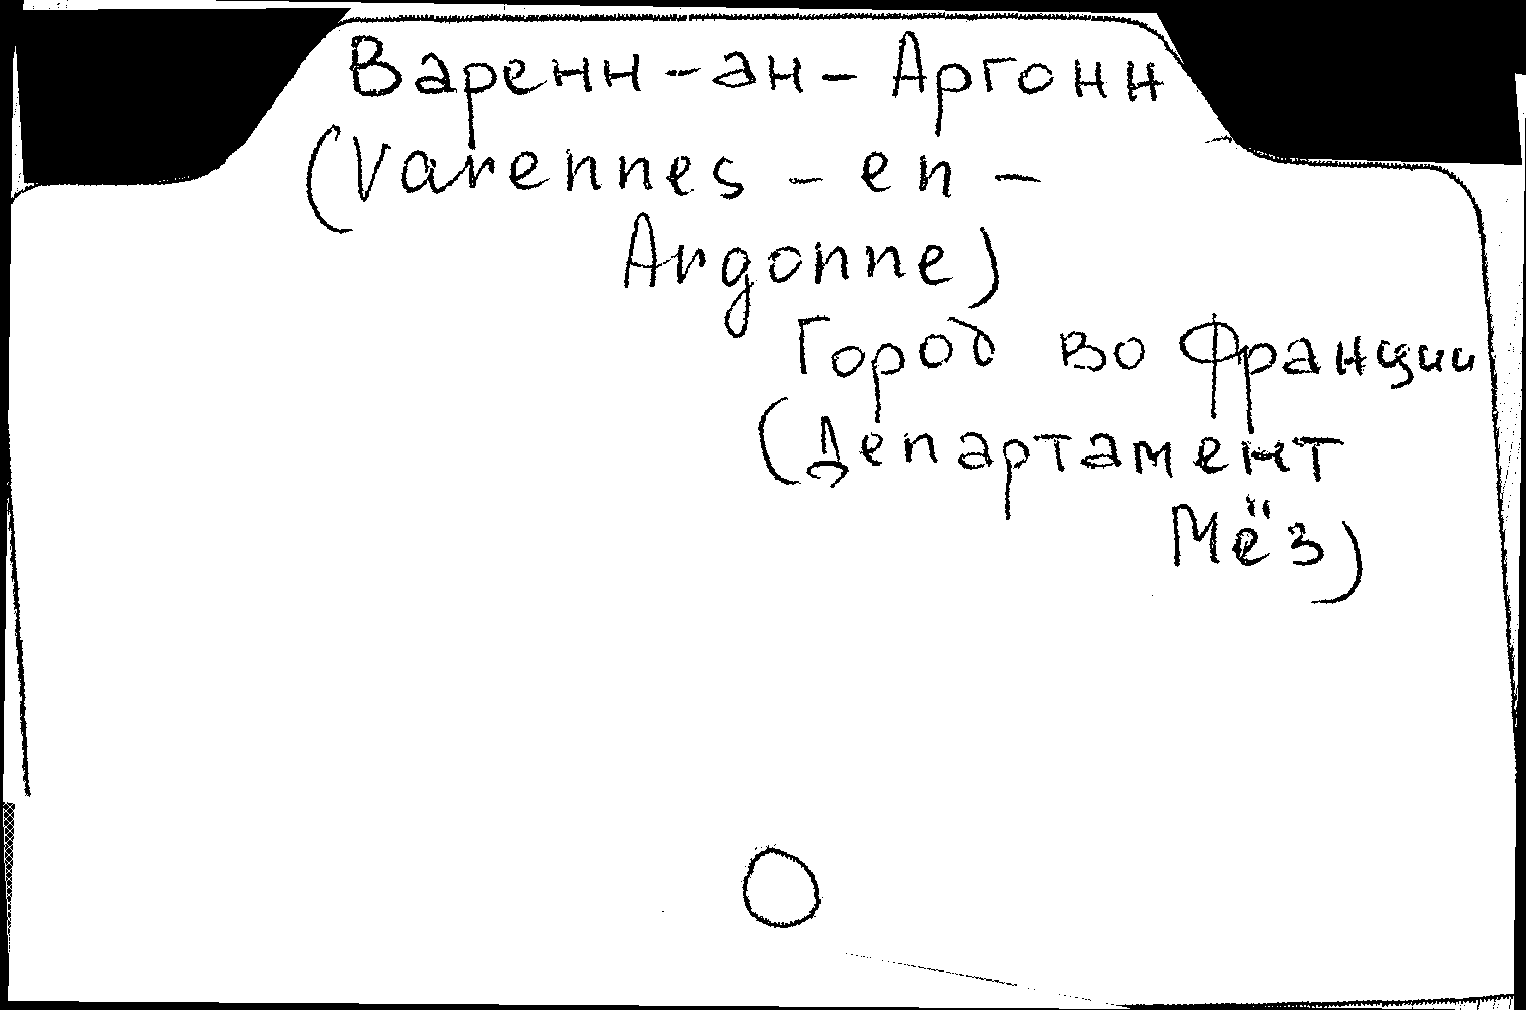 Варенн-ан-Аргонн
(Varennes-en-
Argonne)
Город во Франции
(Департамент
Мёз)